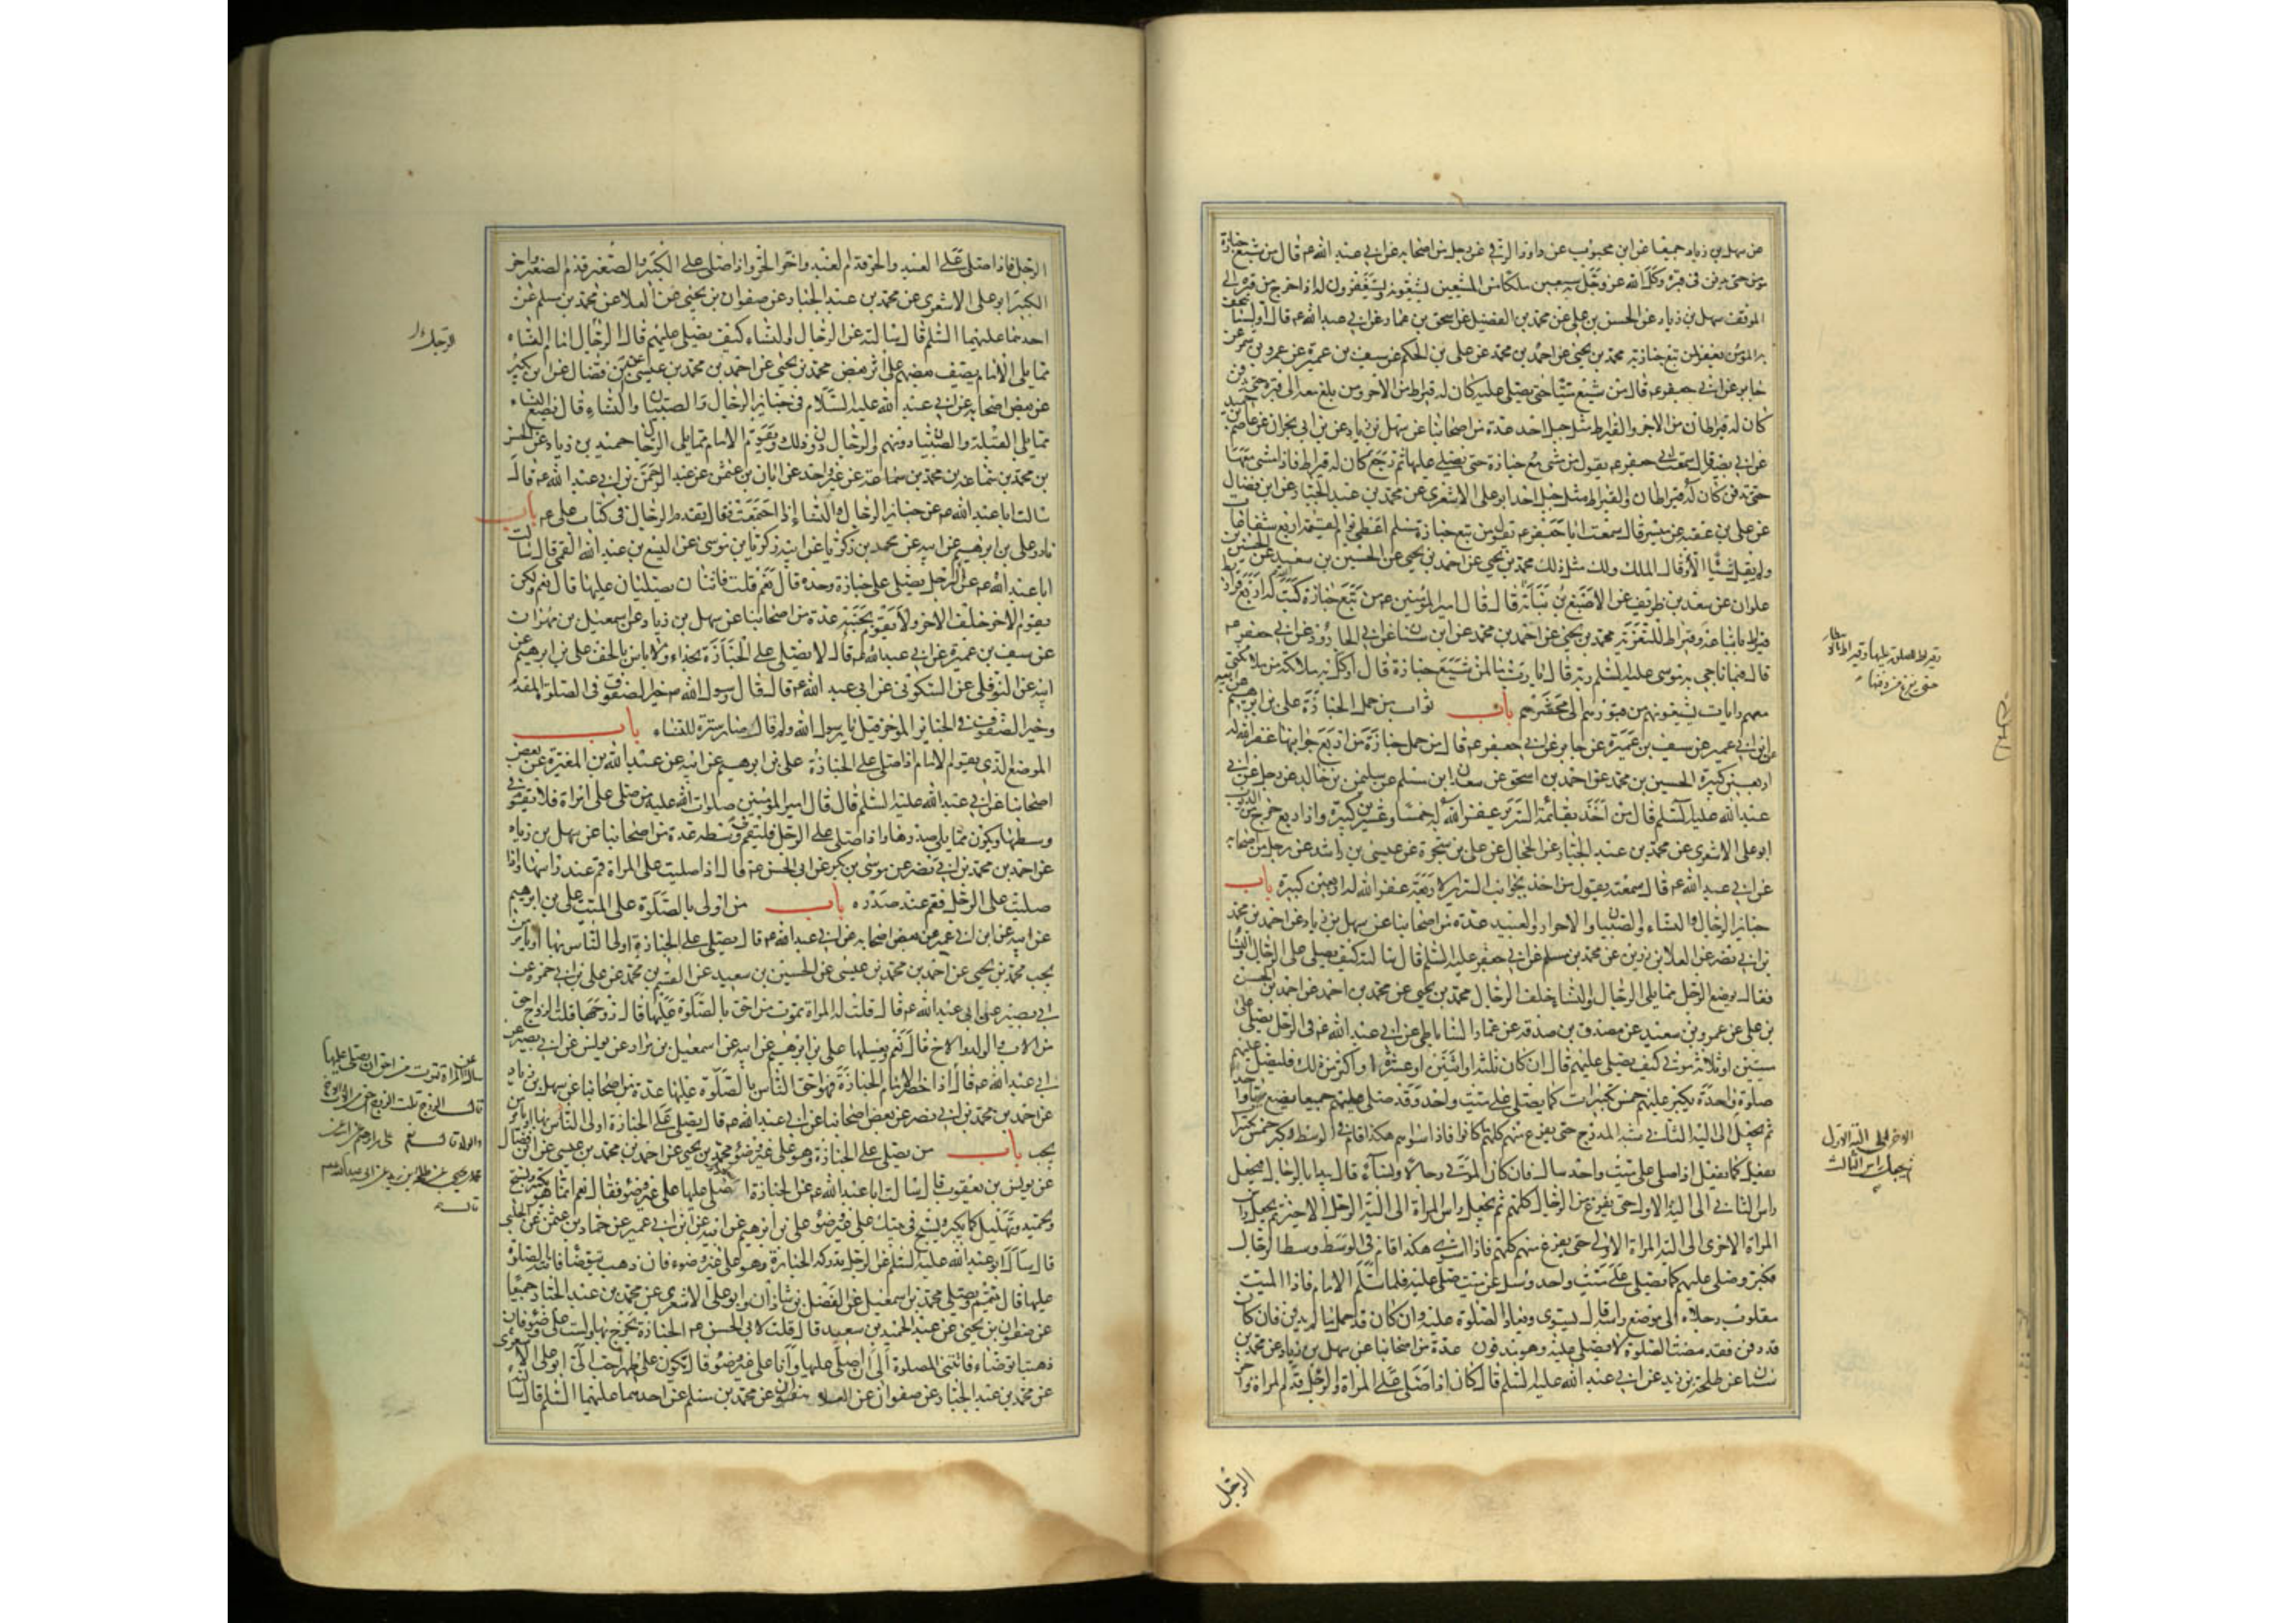 عن سهل بن زياد جميعا عن ابن محبوب عن داود الرقي عن رجل من اصحابه عن ابي عبد الله ع قال من شيع جنازة
مؤمن حتى يدفن في قبره وكل الله عز وجل به سبعين ملكا من المشيعين يشيعونه ويستغفرون له اذا خرج من قبره الى
الموقف سهل بن زياد عن الحسن بن علي عن محمد بن الفضيل عن اسحق بن عمار عن ابي عبد الله ع قال اول ما يتحف
به المؤمن يغفر لمن تبع جنازته محمد بن يحيى عن احمد بن محمد عن علي بن الحكم عن سيف بن عميرة عن عمرو بن شمر عن
جابر عن ابي جعفر ع قال من شيع ميتا حتى يصلى عليه كان له قيراط من الاجر ومن بلغ معه الى قبره حتى يدفن
كان له قيراطان من الاجر والقيراط مثل جبل احد عدة من اصحابنا عن سهل بن زياد عن ابن ابي نجران عن عاصم بن حميد
عن ابي بصير قال سمعت ابا جعفر ع يقول من مشى مع جنازة حتى يصلى عليها ثم رجع كان له قيراط فاذا مشى معها
حتى تدفن كان له قيراطان والقيراط مثل جبل احد ابو علي الاشعري عن محمد بن عبد الجبار عن ابن فضال
عن علي بن عقبة عن ميسر قال سمعت ابا جعفر ع يقول من تبع جنازة مسلم اعطي يوم القيمة اربع شفاعات
ولم يقل شيئا الا وقال الملك ولك مثل ذلك محمد بن يحيى عن احمد بن يحيى عن الحسين بن سعيد عن الحسين بن
علوان عن سعد بن ظريف عن الاصبغ بن نباتة قال قال امير المؤمنين ع من تبع جنازة كتب له اربع قراريط
قيراط باتباعه وقيراط للتعزية محمد بن يحيى عن احمد بن محمد عن ابن سنان عن ابي الجارود عن ابي جعفر ع
قال فيما ناجى به موسى عليه السلم ربه قال يا رب ما لمن شيع جنازة قال اوكل به ملائكة من ملائكتي
معهم رايات يشيعونهم من قبورهم الى محشرهم باب ثواب من حمل الجنازة علي بن ابرهيم عن ابيه
عن ابن ابي عمير عن سيف بن عميرة عن جابر عن ابي جعفر ع قال من حمل جنازة من اربع جوانبها غفر الله له
اربعين كبيرة الحسين بن محمد عن احمد بن اسحق عن سعدان بن مسلم عن سليمن بن خالد عن رجل عن ابي
عبد الله عليه السلم قال من اخذ بقائمة السرير غفر الله له خمسا وعشرين كبيرة واذا ربع خرج من الذنوب
ابو علي الاشعري عن محمد بن عبد الجبار عن الحجال عن علي بن شجرة عن عيسى بن راشد عن رجل من اصحابه
عن ابي عبد الله ع قال سمعته يقول من اخذ بجوانب السرير الاربعة غفر الله له اربعين كبيرة باب
جنايز الرجال والنساء والصبيان والاحرار والعبيد عدة من اصحابنا عن سهل بن زياد عن احمد بن محمد
بن ابي نصر عن العلا بن رزين عن محمد بن مسلم عن ابي جعفر عليه السلم قال سالته كيف يصلى على الرجال والنسا
فقال يوضع الرجل مما يلي الرجال والنسا خلف الرجال محمد بن يحيى عن محمد بن احمد عن احمد بن الحسن
بن علي عن عمرو بن سعيد عن مصدق بن صدقه عن عمار الساباطي عن ابي عبد الله ع في الرجل يصلى على
ميتين او ثلاثة موتى كيف يصلي عليهم قال ان كان ثلثة او اثنين او عشرة او اكثر من ذلك فليصل عليهم
صلوة واحدة يكبر عليهم خمس تكبيرات كما يصلي على ميت واحد وقد صلى عليهم جميعا يضع ميتا واحدا
ثم يجعل الاخر الى الية الاول ثم يجعل شبه المدرج حتى يفرغ منهم كلهم ما كانوا فاذا سواهم هكذا قام في الوسط فكبر خمس تكبيرات
يفعل كما يفعل اذا صلى على ميت واحد سال فان كان الموتى رجالا ونساء قال يبدا بالرجال فيجعل
راس الثاني الى الية الاول حتى يفرغ من الرجال كلهم ثم يجعل راس المراة الى الية الرجل الاخير ثم يجعل راس
المراة الاخرى الى الية المراة الاولى حتى يفرغ منهم كلهم فاذا سوى هكذا قام في الوسط وسط الرجال
فكبر وصلى عليهم كما يصلي على ميت واحد وسئل عن ميت صلي عليه فلما سلم الامام فاذا الميت
مقلوب رجلاه الى موضع راسه قال يسوى وتعاد الصلوة عليه وان كان قد حمل ما لم يدفن فان كان
قد دفن فقد مضت الصلوة لا يصلى عليه وهو مدفون عدة من اصحابنا عن سهل بن زياد عن محمد بن
سنان عن طلحة بن زيد عن ابي عبد الله عليه السلم قال كان اذا صلى على المراة والرجل قدم المراة واخر
الرجل
وقيراط للصلوة عليها وقيراط بالانتظار
حتى يفرغ من دفنها
الاخر الى الية الاول
ثم يجعل راس الثالث
الرجل فاذا صلى على العبد والحر قدم العبد واخر الحر واذا صلى على الكبير والصغير قدم الصغير واخر
الكبير ابو علي الاشعري عن محمد بن عبد الجبار عن صفوان بن يحيى عن العلا عن محمد بن مسلم عن
احدهما عليهما السلم قال سالته عن الرجال والنساء كيف يصلى عليهم قال الرجال امام النساء
مما يلي الامام يصف بعضهم على اثر بعض محمد بن يحيى عن احمد بن محمد بن عيسى عن ابن فضال عن ابن بكير
عن بعض اصحابه عن ابي عبد الله عليه السلام في جنايز الرجال والصبيان والنساء قال يضع النساء
مما يلي القبلة والصبيان دونهم والرجال دون ذلك ويقوم الامام مما يلي الرجال حميد بن زياد عن الحسن
بن محمد بن سماعة عن غير واحد عن ابان بن عثمن عن عبد الرحمن بن ابي عبد الله ع قال
سالت ابا عبد الله ع عن جنايز الرجال والنسا اذا اجتمعت فقال يقدم الرجال في كتاب علي ع باب
نادر علي بن ابرهيم عن ابيه عن محمد بن زكريا عن ابيه زكريا بن موسى عن اليسع بن عبد الله القمي قال سالت
ابا عبد الله ع عن الرجل يصلي على جنازة وحده قال نعم قلت فاثنان يصليان عليها قال نعم ولكن
يقوم الاخر خلف الاخر ولا يقوم بجنبه عدة من اصحابنا عن سهل بن زياد عن اسمعيل بن مهران
عن سيف بن عميرة عن ابي عبد الله ع قال لا يصلى على الجنازة بحذاء ولا باس بالخف علي بن ابرهيم عن
ابيه عن النوفلي عن السكوني عن ابي عبد الله ع قال قال رسول الله ص خير الصفوف في الصلوة المقدم
وخير الصفوف في الجنائز الموخر قيل يا رسول الله ولم قال صار سترة للنساء باب
الموضع الذي يقوم الامام اذا صلى على الجنازة علي بن ابرهيم عن ابيه عن عبد الله بن المغيرة عن بعض
اصحابنا عن ابي عبد الله عليه السلم قال قال امير المؤمنين صلوات الله عليه من صلى على امراة فلا يقوم في
وسطها ويكون مما يلي صدرها واذا صلى على الرجل فليقم في وسطه عدة من اصحابنا عن سهل بن زياد
عن احمد بن محمد بن ابي نصر عن موسى بن بكر عن ابي الحسن ع قال اذا صليت على المراة فقم عند راسها واذا
صليت على الرجل فقم عند صدره باب من اولى بالصلوة على الميت علي بن ابرهيم
عن ابيه عن ابن ابي عمير عن بعض اصحابه عن ابي عبد الله ع قال يصلي على الجنازة اولى الناس بها او يامر من
يحب محمد بن يحيى عن احمد بن محمد بن عيسى عن الحسين بن سعيد عن القسم بن محمد عن علي بن ابي حمزة عن
ابي بصير عن ابي عبد الله ع قال قلت له المراة تموت من احق بالصلوة عليها قال زوجها قلت الزوج احق
من الاب والولد والاخ قال نعم ويغسلها علي بن ابرهيم عن ابيه عن اسمعيل بن مرار عن يونس عن ابي بصير عن
ابي عبد الله ع قال اذا حضر الامام الجنازة فهو احق الناس بالصلوة عليها عدة من اصحابنا عن سهل بن زياد
عن احمد بن محمد بن ابي نصر عن بعض اصحابنا عن ابي عبد الله ع قال يصلي على الجنازة اولى الناس بها او يامر من
يحب باب من يصلي على الجنازة وهو على غير وضوء محمد بن يحيى عن احمد بن محمد بن عيسى عن ابن فضال
عن يونس بن يعقوب قال سالت ابا عبد الله ع عن الجنازة اصلي عليها على غير وضوء فقال نعم انما هو تكبير وتسبيح
وتحميد وتهليل كما يكبر ويسبح في بيتك على غير وضوء علي بن ابرهيم عن ابيه عن ابن ابي عمير عن حماد بن عثمن عن الحلبي
قال سال ابو عبد الله عليه السلم عن الرجل يدركه الجنازة وهو على غير وضوء فان ذهب يتوضا فاتته الصلوة
عليها قال يتيمم ويصلي محمد بن اسمعيل عن الفضل بن شاذان وابو علي الاشعري عن محمد بن عبد الجبار جميعا
عن صفوان بن يحيى عن عبد الحميد بن سعيد قال قلت لابي الحسن ع الجنازة يخرج بها ولست على وضوء فان
ذهبت اتوضاء فاتتني الصلوة الي ان اصلي عليها وانا على غير وضوء قال تكون على طهر احب الي ابو علي الاشعري
عن محمد بن عبد الجبار عن صفوان عن العلا عن محمد بن مسلم عن احدهما عليهما السلم قال سالته
الرجال
سالته عن المراة تموت من احق ان يصلي عليها
قال الزوج قلت الزوج احق من الاب والاخ
والولد قال نعم